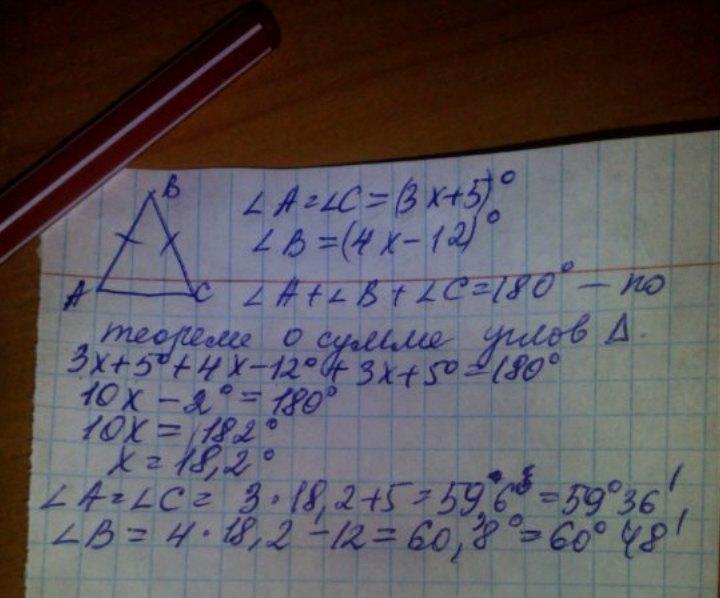 B
∠A=∠C=(3x+5)°
∠B=(4x-12)°
A
C
∠A+∠B+∠C=180° - по
теореме о сумме углов Δ.
3x+5°+4x-12°+3x+5°=180°
10x-2°=180°
10x=182°
x=18,2°
∠A=∠C= 3·18,2+5=59,6°=59°36'
∠B= 4·18,2-12=60,8°=60°48'